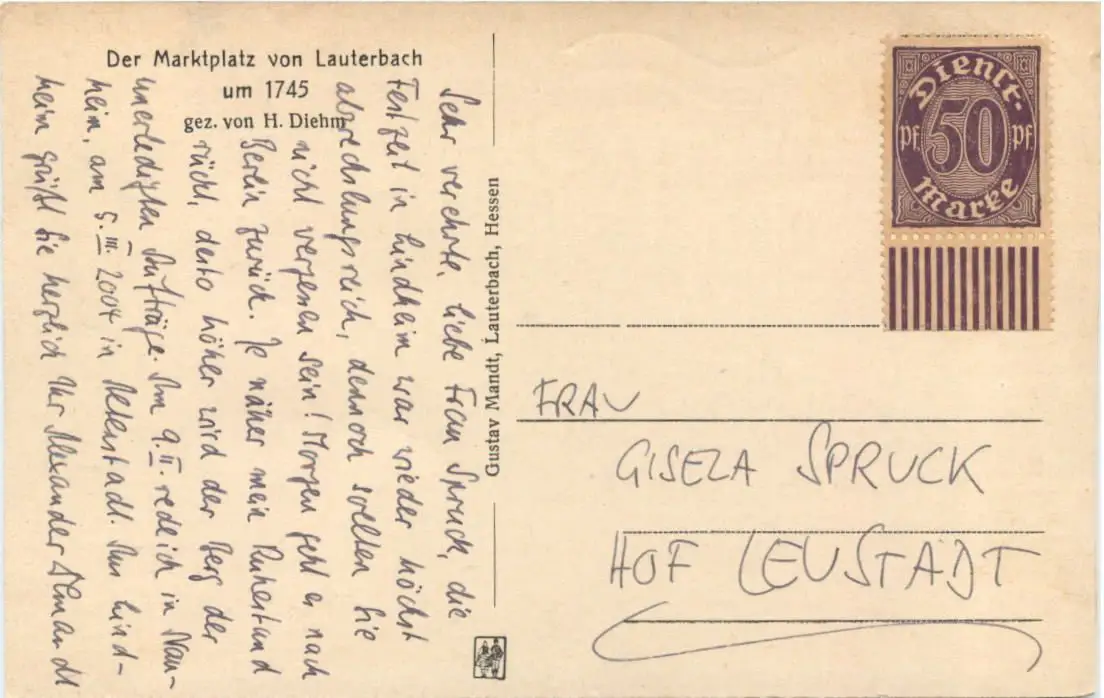 Der Marktplatz von Lauterbach
um 1745
gez. von H. Diehm
Sehr verehrte, liebe Frau Spruck, die
Festzeit in Lindheim war wieder höchst
abwechslungsreich, dennoch sollten Sie
nicht vergessen sein! Morgen geht es nach
Berlin zurück. Je näher mein Ruhestand
rückt, desto höher wird der Berg der
unerledigten Aufträge. Am 9.II. rede ich in Nau-
heim, am 5.III.2004 in Altenstadt. Aus Lind-
heim grüßt Sie herzlich Ihr Alexander Demandt
Gustav Mandt, Lauterbach, Hessen
Dienst-
Pf. 50 Pf.
Marke
FRAU
GISELA SPRUCK
HOF LEUSTADT